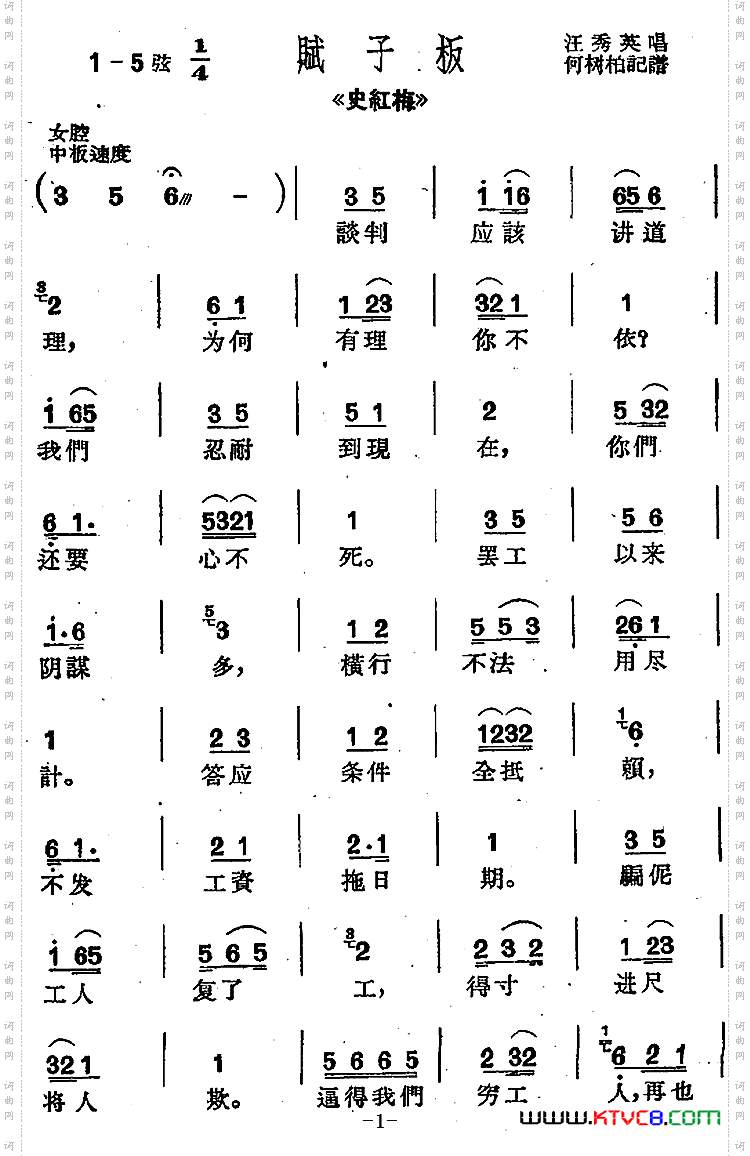 1－5弦 1/4 賦子板 汪秀英唱
何树柏記譜
《史紅梅》
女腔
中板速度
(3 5 6 －) | 3 5 | 1 16 | 65 6 |
談判 应該 讲道
3 2 | 6 1 | 1 23 | 321 | 1
理, 为何 有理 你不 依?
1 65 | 3 5 | 5 1 | 2 | 5 32
我們 忍耐 到現 在, 你們
6 1. | 5321 | 1 | 3 5 | 5 6
还要 心不 死。 罢工 以来
1.6 | 5 3 | 1 2 | 5 5 3 | 26 1
阴謀 多, 橫行 不法 用尽
1 | 2 3 | 1 2 | 1232 | 1 6
計。 答应 条件 全抵 賴,
6 1. | 2 1 | 2.1 | 1 | 3 5
不发 工資 拖日 期。 騙伲
1 65 | 5 6 5 | 3 2 | 2 3 2 | 1 23
工人 复了 工, 得寸 进尺
32 1 | 1 | 5 6 6 5 | 2 32 | 1 6 2 1
将人 欺。 逼得我們 穷工 人,再也
-1-
www.KTVC8.com
词曲网